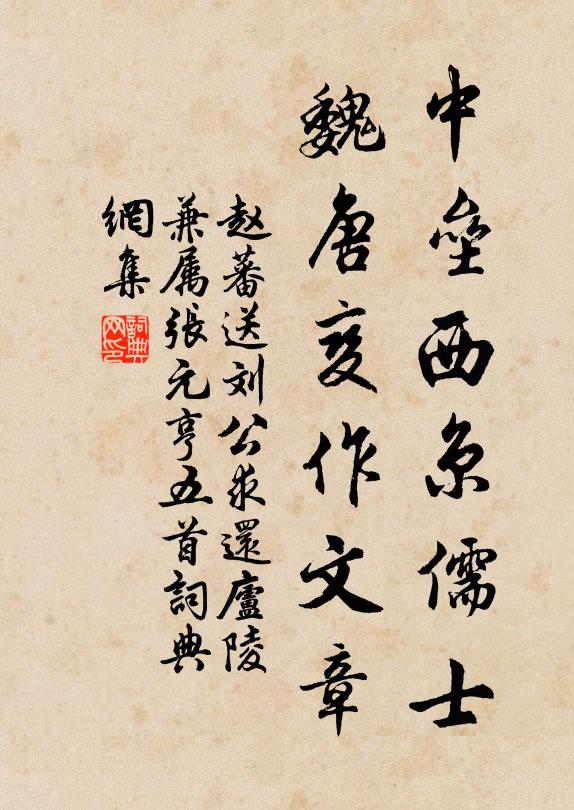 中壘西京儒士
魏唐变作文章
赵蕃送刘公求還廬陵
兼属張元亨五首詞典
網集
詞典
网印